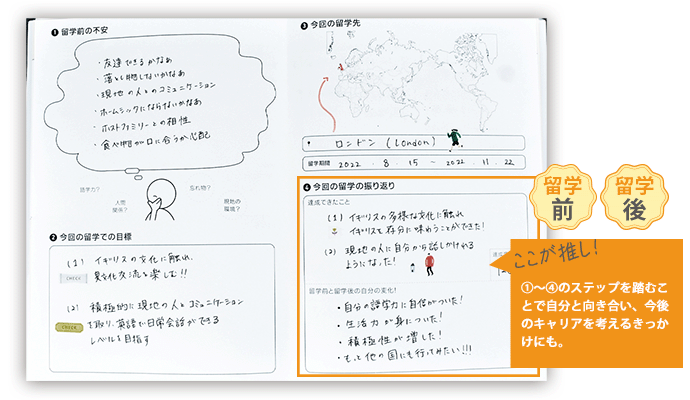 ❶ 留学前の不安
・友達できるかなぁ
・落とし物しないかなぁ
・現地の人とのコミュニケーション
・ホームシックにならないかなぁ
・ホストファミリーとの相性
・食べ物が口に合うか心配
語学力?
忘れ物?
人間
関係?
現地の
環境?
❷ 今回の留学での目標
(1) イギリスの文化に触れ、
異文化交流を楽しむ!!
CHECK
(2) 積極的に現地の人とコミュニケーション
を取り、英語で日常会話ができる
CHECK
レベルを目指す
❸ 今回の留学先
ロンドン (London)
留学期間
2022 . 8 . 15 ~ 2022 . 11 . 22
❹ 今回の留学の振り返り
達成できたこと
(1) イギリスの多様な文化に触れ
イギリスを存分に味わうことができた!
(2) 現地の人に自分から話しかけれる
ようになった!
達成
留学前と留学後の自分の変化!
・自分の語学力に自信がついた!
・生活力が身についた!
・積極性が増した!
・もっと他の国にも行ってみたい!!!
留学
前
留学
後
ここが推し!
①〜④のステップを踏むこ
とで自分と向き合い、今後
のキャリアを考えるきっか
けにも。